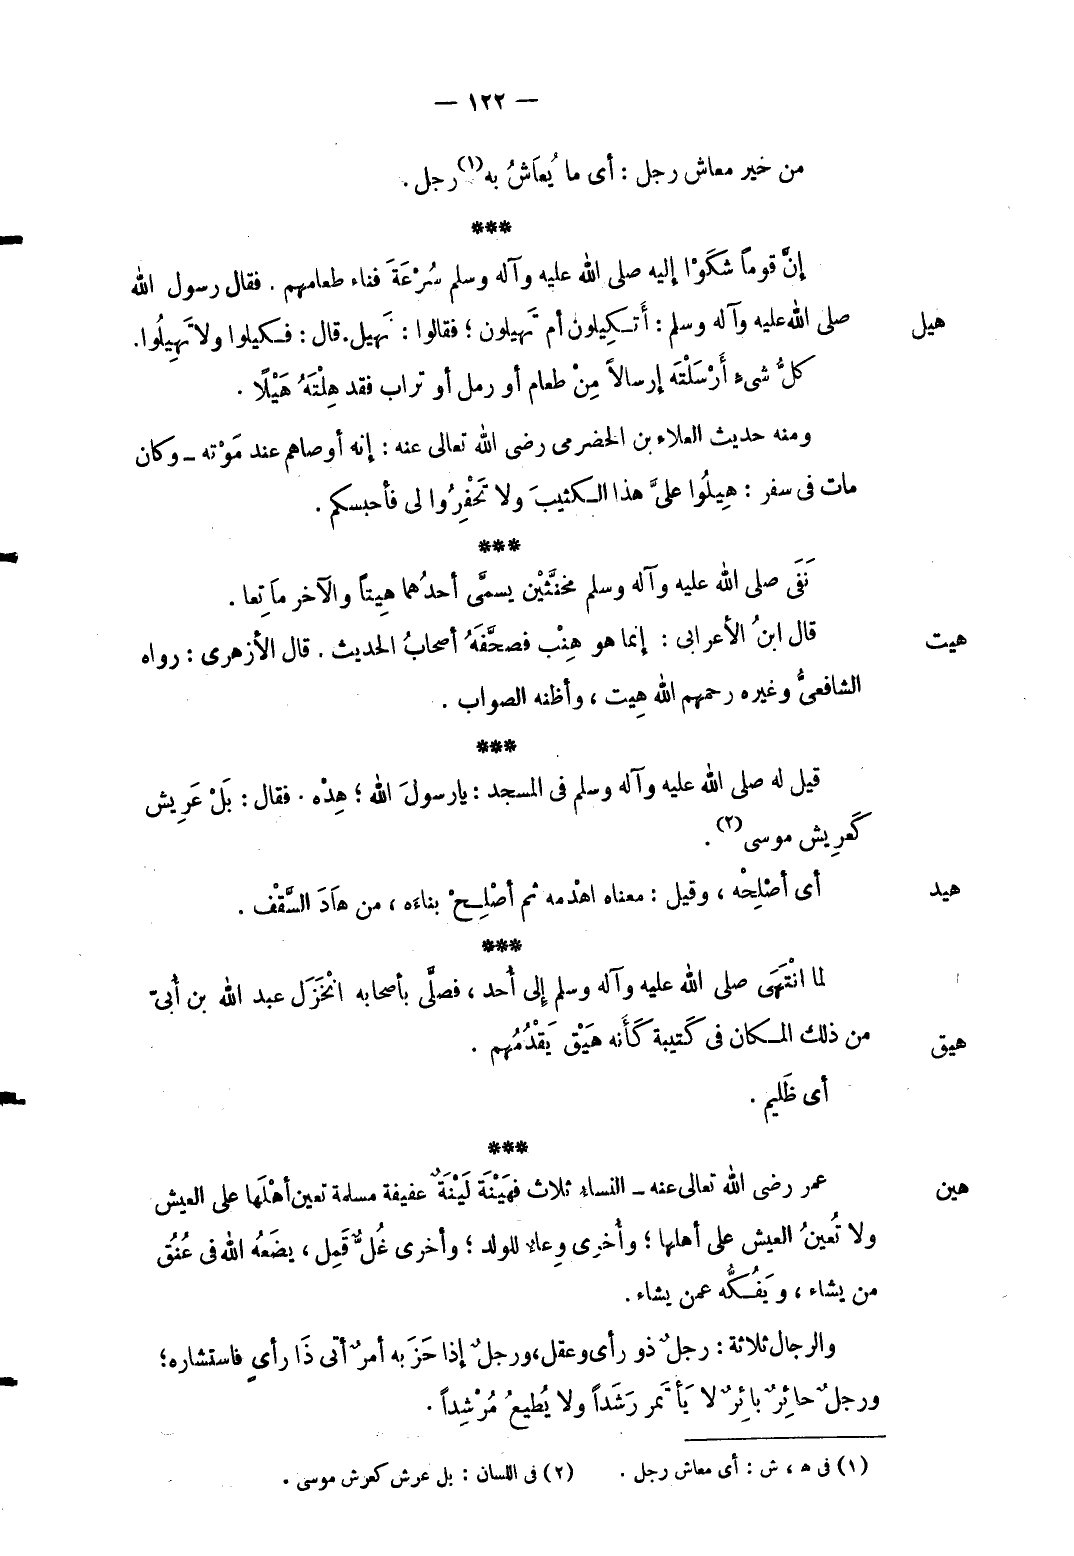 — ١٢٢ —
من خير معاش رجل : أى ما يُعاَشُ به(١) رجل .
***
إنَّ قوماً شَكَوْا إليه صلى الله عليه وآله وسلم سُرْعَةَ فناء طعامهم . فقال رسول الله
هيل صلى الله عليه وآله وسلم : أَتـكِيلون أم تَهيلون ؛ فقالوا : نَهيل. قال : فـكيلوا ولا تَهِيلُوا.
كلُّ شىءٍ أَرْسَلْتَه إرسالاً مِنْ طعام أو رمل أو تراب فقد هِلْتَهُ هَيْلًا .
ومنه حديث العلاء بن الحضرمى رضى الله تعالى عنه : إنه أوصاهم عند مَوْته ــ وكان
مات فى سفر : هِيلُوا علىَّ هذا الـكثيبَ ولا تَحْفِرُوا لى فأحبسكم .
***
نَفَى صلى الله عليه وآله وسلم مخنَّثَيْن يسمَّى أحدُهما هِيتاً والآخر ماَتِعا .
هيت قال ابنُ الأعرابى : إنما هو هِنْب فصحَّفَهُ أصحابُ الحديث . قال الأزهرى : رواه
الشافعىُّ وغيره رحمهم الله هِيت ، وأظنه الصواب .
***
قيل له صلى الله عليه وآله وسلم فى المسجد : يارسولَ الله ؛ هِدْه . فقال : بَلْ عَرِيش
كَعرِيش موسى(٢) .
هيد أى أصْلِحْه ، وقيل : معناه اهْدمه ثم أصْلِـحْ بناءَه ، من هاَدَ السَّقْف .
***
لما انْتَهَى صلى الله عليه وآله وسلم إلى أُحد ، فصلَّى بأصحابه انْخَزَل عبد الله بن أُبىّ
هيق من ذلك المـكان فى كَتيبة كَأَنه هَيْق يَقْدُمُهم .
أى ظَليم .
***
هين عمر رضى الله تعالى عنه ــ النساء ثلاث فهَيْنَة لَيْنَةٌ عفيفة مسلمة تعين أهْلَها على العيش
ولا تُعينُ العيش على أهلها ؛ وأُخرى وِعاءٌ للولد ؛ وأخرى غُلٌّ قَمِل ، يضَعُه الله فى عُنُق
من يشاء ، ويَفُـكُّه عمن يشاء .
والرجال ثلاثة : رجلٌ ذو رأى وعقل، ورجلٌ إذا حَزَ به أمرٌ أتى ذَا رأىٍ فاستشاره ؛
ورجلٌ حائِرٌ بائِرٌ لا يَأتَمر رَشَداً ولا يُطيعُ مُرْشِداً .
(١) فى ه ، ش : أى معاش رجل . (٢) فى اللسان : بل عرش كعرش موسى .